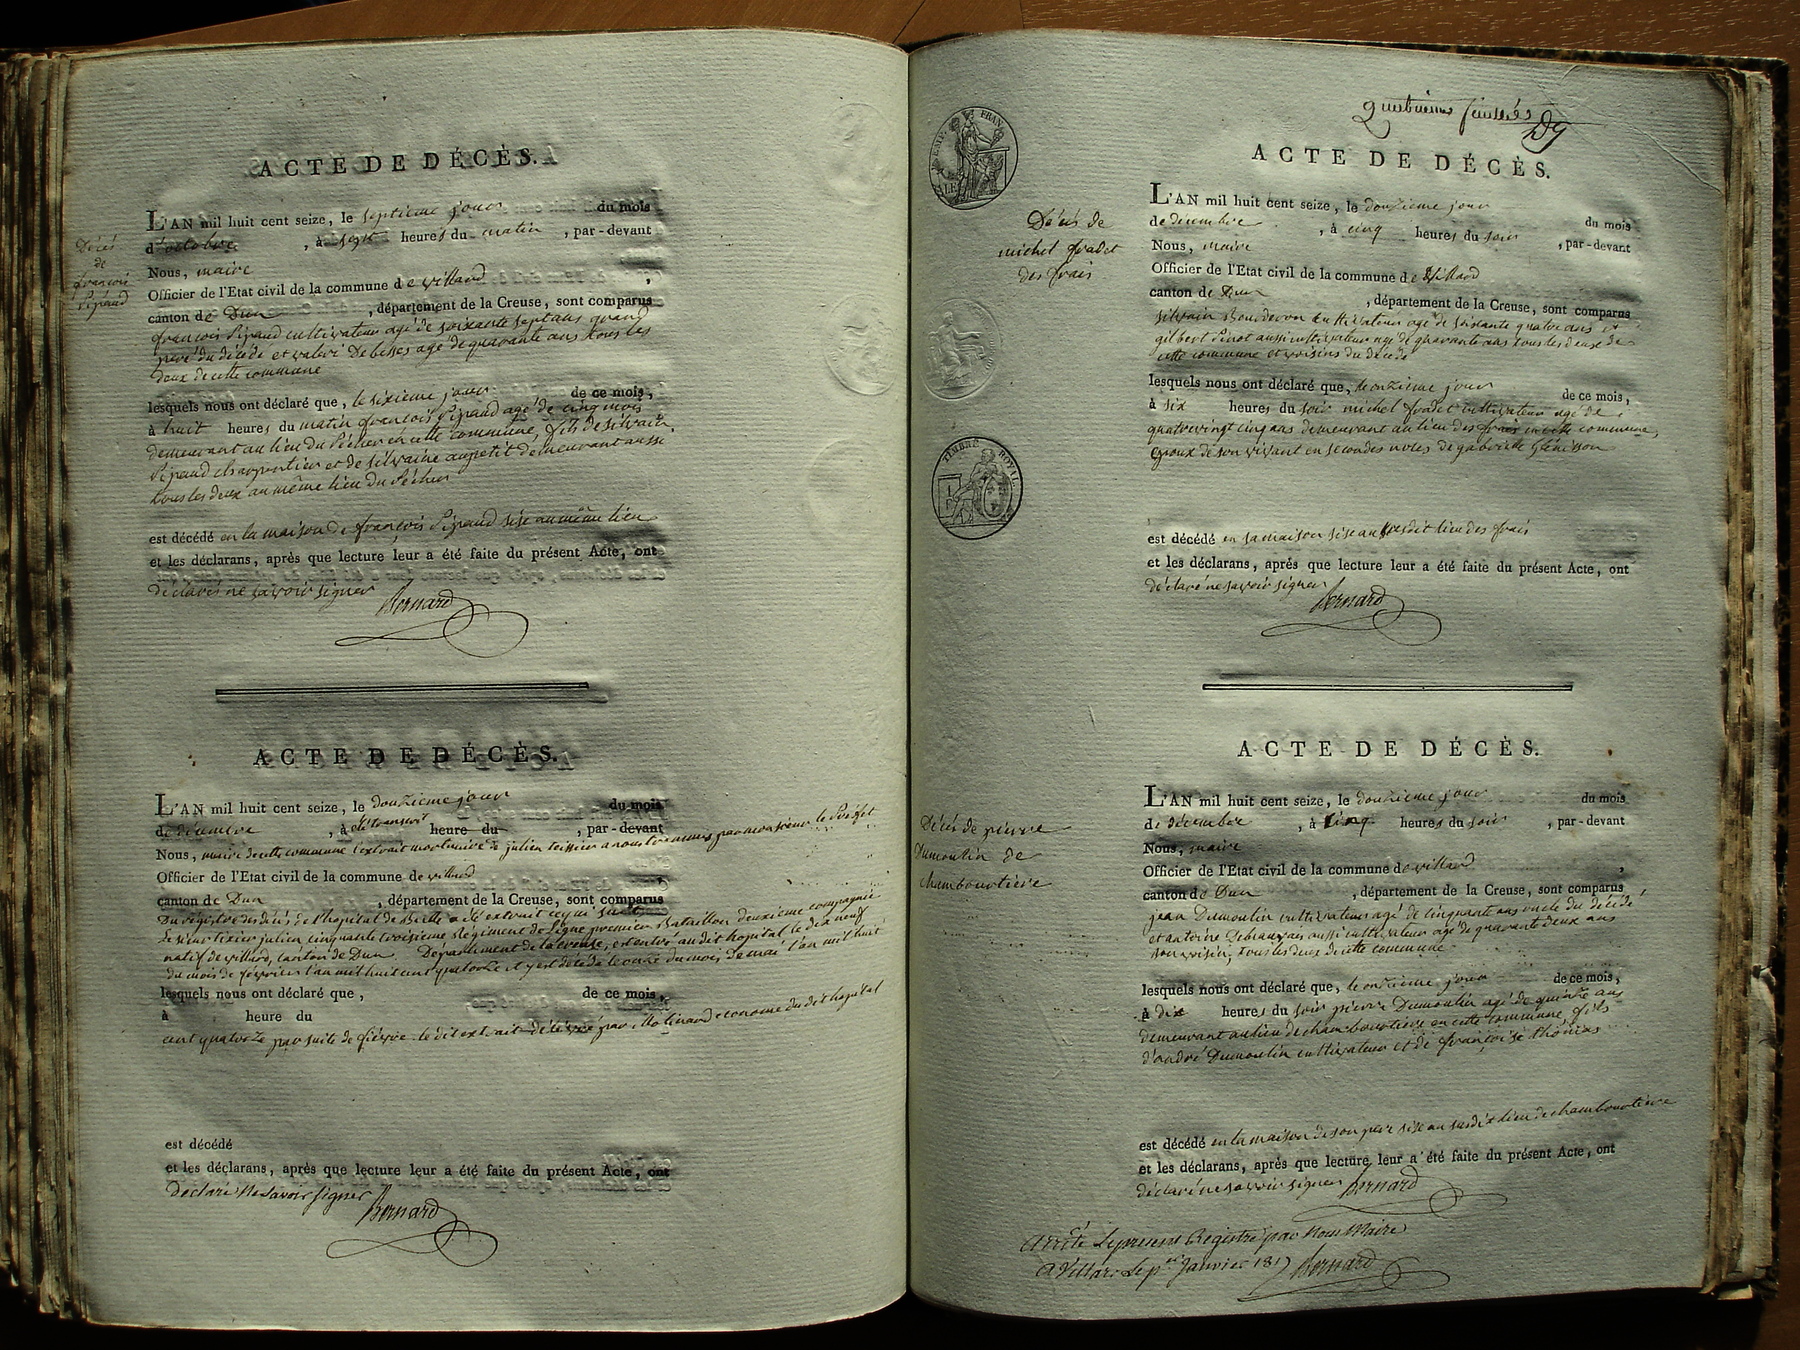 ACTE DE DÉCÈS.
L'AN mil huit cent seize, le septieme jour du mois
d'octobre, à sept heures du matin, par-devant
Nous, maire
Officier de l'Etat civil de la commune de villard,
canton de Dun, département de la Creuse, sont comparus
françois Pipaud cultivateur agé de soixante sept ans grand
pere du décédé et valeri Debesses agé de quarante ans tous les
deux de cette commune
lesquels nous ont déclaré que, le sixieme jour de ce mois,
à huit heures du matin françois Pipaud agé de cinq mois
demeurant au lieu du Pécher en cette commune, fils de silvain
Pipaud charpentier et de silvaine aupetit demeurant aussi
tous les deux au même lieu du Pécher
est décédé en la maison de françois Pipaud sise au même lieu
et les déclarans, après que lecture leur a été faite du présent Acte, ont
déclarés ne savoir signer Bernard
Décés
de
françois
Pipaud
ACTE DE DÉCÈS.
L'AN mil huit cent seize, le douzieme jour du mois
de décembre, à été transcrit heure du, par-devant
Nous, maire de cette commune l'extrait mortuaire de julien teissier a nous transmis par monsieur le Préfet
Officier de l'Etat civil de la commune de villard
canton de Dun, département de la Creuse, sont comparus
Du régistre des décés de l'hopital de a été extrait ce qui suit
Le sieur tixier julien cinquante troisieme Régiment de Ligne premier Bataillon deuxieme compagnie
natif de villard, canton de Dun Département de la creuse, est entré au dit hopital le dix neuf
du mois de février l'an mil huit cent quatorze et y est décédé le onze du mois de mai l'an mil huit
lesquels nous ont déclaré que, de ce mois,
à heure du
cent quatorze par suite de fièvre le dit extrait délivré par Molinard econome du dit hopital
est décédé
et les déclarans, après que lecture leur a été faite du présent Acte, ont
déclaré ne savoir signer Bernard
quatrieme feuille
ACTE DE DÉCÈS.
L'AN mil huit cent seize, le douzieme jour du mois
de décembre, à cinq heures du soir, par-devant
Nous, maire
Officier de l'Etat civil de la commune de villard
canton de Dun, département de la Creuse, sont comparus
silvain Bourderon cultivateur agé de soixante quatre ans et
gilbert Pinot aussi cultivateur agé de quarante ans tous les deux de
cette commune et voisins du décédé
lesquels nous ont déclaré que, le onzieme jour de ce mois,
à six heures du soir michel fradet cultivateur agé de
quatre vingt cinq ans demeurant au lieu des frais en cette commune,
epoux de son vivant en secondes noces de gabrielle Glénisson
est décédé en sa maison sise au susdit lieu des frais
et les déclarans, après que lecture leur a été faite du présent Acte, ont
déclaré ne savoir signer
Bernard
Décés de
michel fradet
des frais
TIMBRE ROYAL
ACTE DE DÉCÈS.
L'AN mil huit cent seize, le douzieme jour du mois
de décembre, à cinq heures du soir, par-devant
Nous, maire
Officier de l'Etat civil de la commune de villard,
canton de Dun, département de la Creuse, sont comparus
jean Dumoulin cultivateur agé de cinquante ans oncle du décédé
et antoine aussi cultivateur agé de quarante deux ans
son voisin, tous les deux de cette commune
lesquels nous ont déclaré que, le onzieme jour de ce mois,
à dix heures du soir pierre Dumoulin agé de quinze ans
demeurant au lieu de chambourtiere en cette commune, fils
d'andré Dumoulin cultivateur et de françoise thomas
est décédé en la maison de son pere sise au susdit lieu de chambourtiere
et les déclarans, après que lecture leur a été faite du présent Acte, ont
déclaré ne savoir signer Bernard
Décés de pierre
Dumoulin de
chambourtiere
Arrêté Le présent Registre par Nous Maire
A Villard Le pr Janvier 1817 Bernard